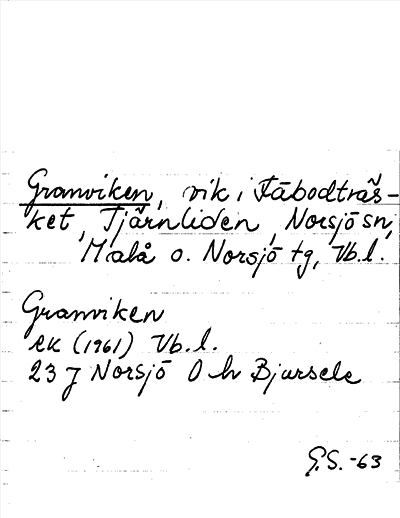 Granviken, vik i Fäbodträs-
ket, Tjärnliden, Norsjö sn,
Malå o. Norsjö tg, Vb.l.
Granviken
ek (1961) Vb.l.
23 J Norsjö 0 h Bjursele
G.S. -63